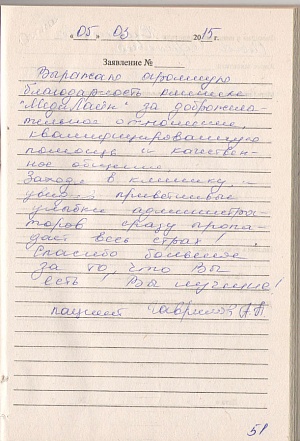 " 05 " 03 2015 г.
Заявление №
Выражаю огромную
благодарность клинике
"МедиЛайн" за доброжела-
тельное отношение,
квалифицированную
помощь и качествен-
ное общение.
Заходя в клинику, –
увидев приветливые
улыбки администра-
торов сразу пропа-
дает весь страх!
Спасибо большое
за то, что Вы
есть, Вы лучшие!
пациент Гаврилова А.П
51